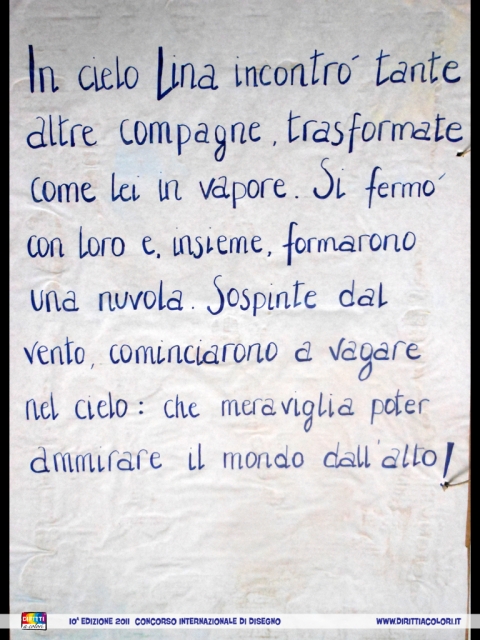 In cielo Lina incontró tante
altre compagne, trasformate
come lei in vapore. Si fermó
con loro e, insieme, formarono
una nuvola. Sospinte dal
vento, cominciarono a vagare
nel cielo: che meraviglia poter
ammirare il mondo dall'alto!
DIRITTI a colori 10ª EDIZIONE 2011 CONCORSO INTERNAZIONALE DI DISEGNO WWW.DIRITTIACOLORI.IT